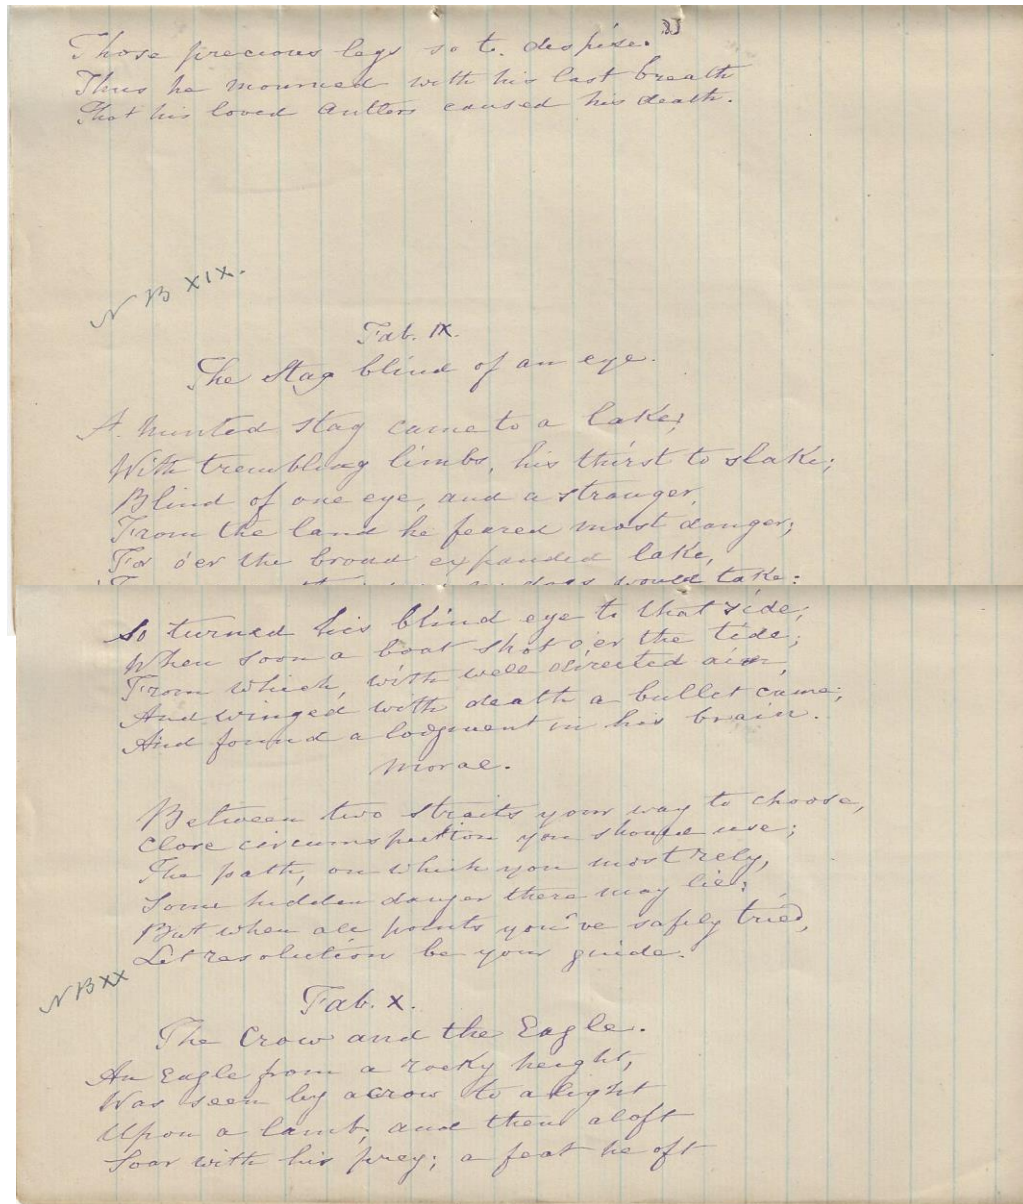 33
Those precious legs so to despise.
Thus he mourned with his last breath
That his loved antlers caused his death.
N B XIX.
Fab. IX.
The Stag blind of an eye.
A hunted stag came to a lake;
With trembling limbs, his thirst to slake;
Blind of one eye, and a stranger,
From the land he feared most danger;
For o'er the broad expanded lake,
dogs would take:
So turned his blind eye to that side;
When soon a boat shot o'er the tide;
From which, with well directed aim,
And winged with death a bullet came;
And found a lodgment in his brain.
Moral.
Between two straits your way to choose,
Close circumspection you should use;
The path, on which you most rely,
Some hidden danger there may lie:
But when all points you've safely tried,
Let resolution be your guide.
N B XX
Fab. X.
The Crow and the Eagle.
An Eagle from a rocky height,
Was seen by a crow to alight
Upon a lamb, and then aloft
Soar with his prey; a feat he oft